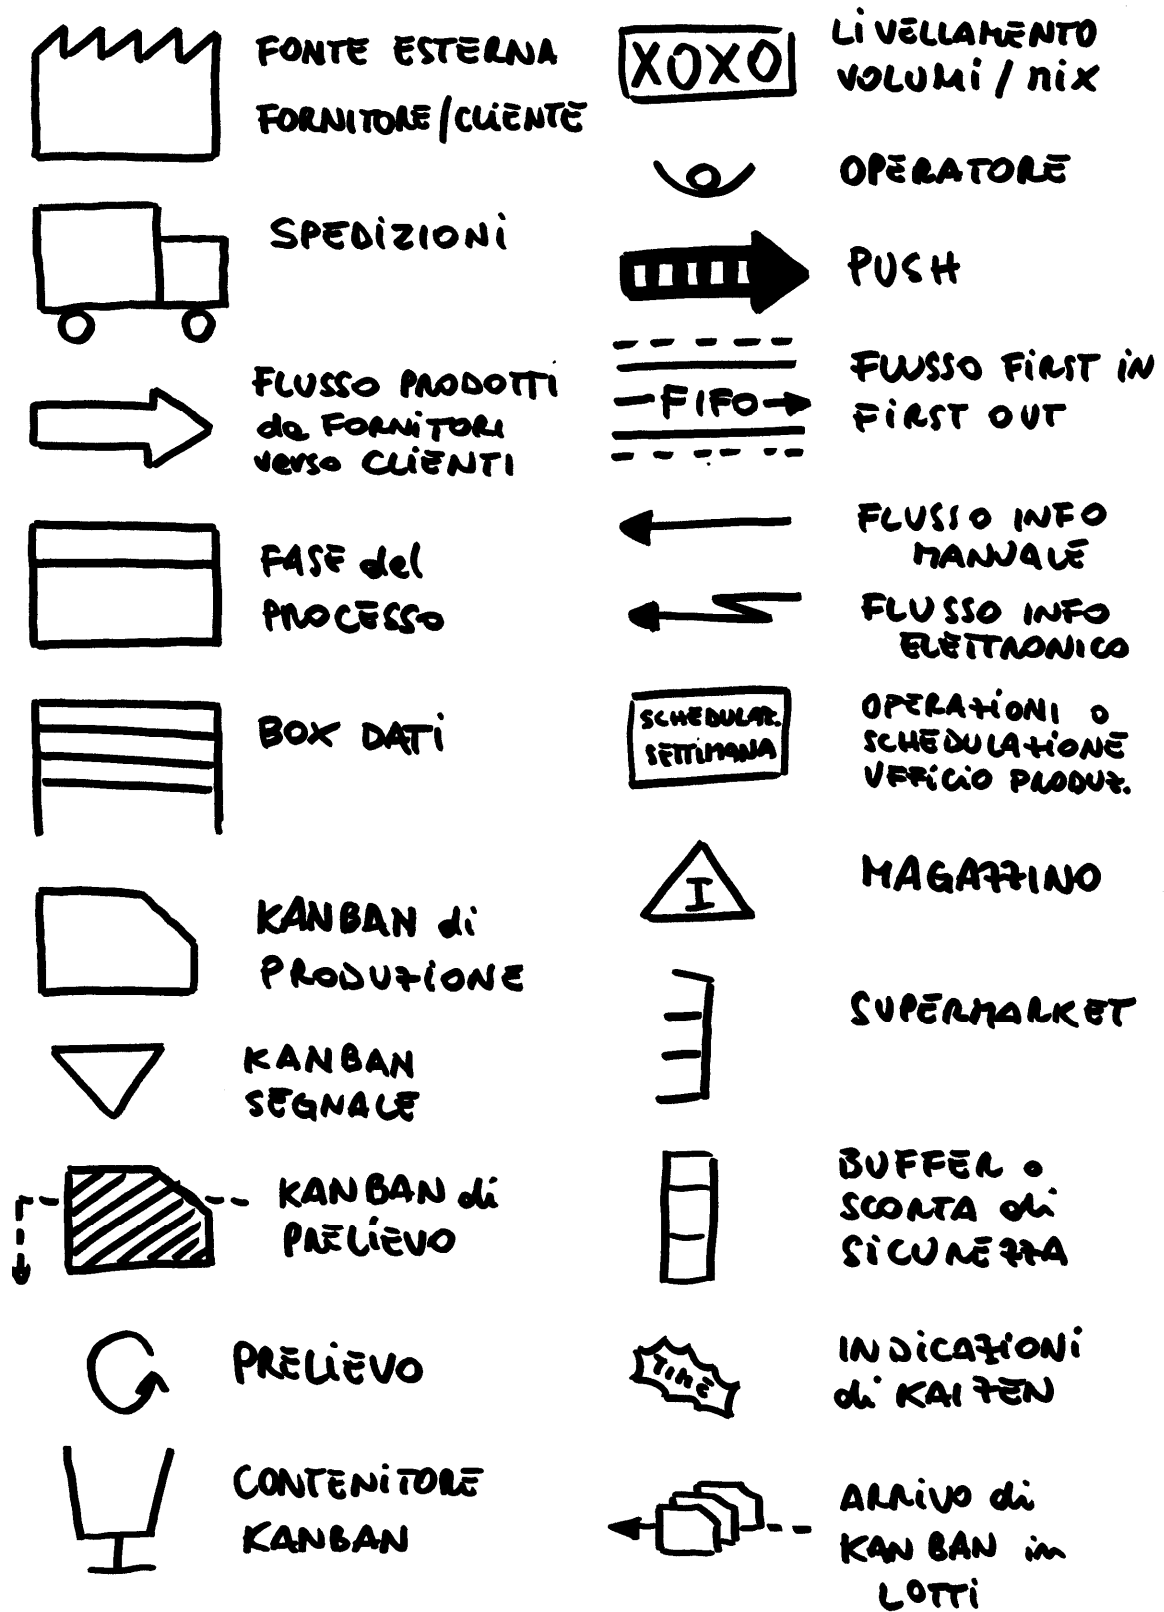 FONTE ESTERNA
FORNITORE/CLIENTE
SPEDIZIONI
FLUSSO PRODOTTI
da FORNITORI
verso CLIENTI
FASE del
PROCESSO
BOX DATI
KANBAN di
PRODUZIONE
KANBAN
SEGNALE
KANBAN di
PRELIEVO
PRELIEVO
CONTENITORE
KANBAN
XOXO
LIVELLAMENTO
VOLUMI / MIX
OPERATORE
PUSH
FIFO
FLUSSO FIRST IN
FIRST OUT
FLUSSO INFO
MANUALE
FLUSSO INFO
ELETTRONICO
SCHEDULAZ.
SETTIMANA
OPERAZIONI O
SCHEDULAZIONE
UFFICIO PRODUZ.
I
MAGAZZINO
SUPERMARKET
BUFFER o
SCORTA di
SICUREZZA
TIME
INDICAZIONI
di KAIZEN
ARRIVO di
KANBAN in
LOTTI